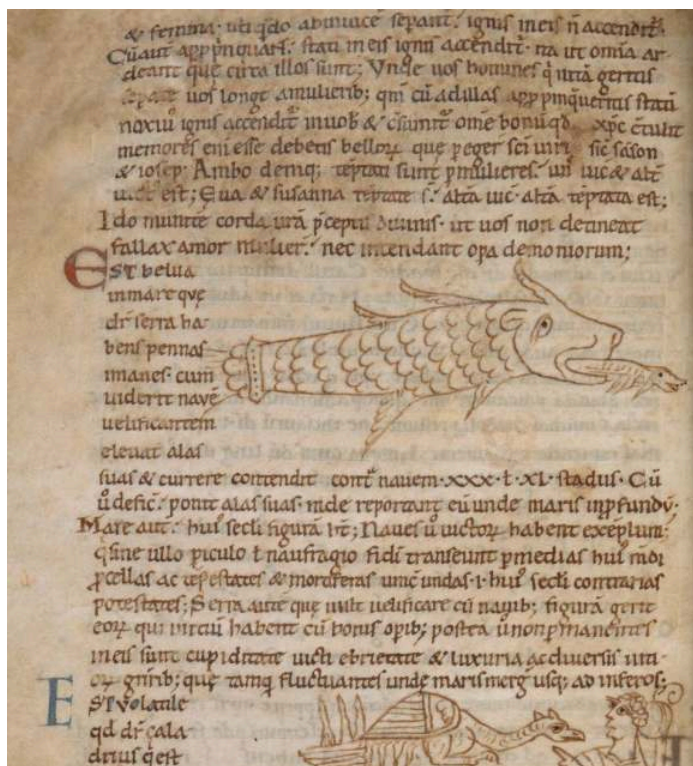 & femina. uti qdo abinuice sepant᷑. ignis in eis n̄ accendit᷑.
Cū aut app̄pinquart᷑. stati in eis ignis accendit᷑. na ut omīa ar
deant quę circa illos sunt; Vnde uos homines q̇ iūta geritis
uos longe amulierib; qm̄ cū ad illas app̄pinqueritis statī
noxiū ignis accendit᷑ in uob & cs̄umit᷑ om̄e bonū qd xp̄c c̄tulit
memores eni esse debetis belloꝝ que pegert sc̄i uiri sic sason
& iosep; Ambo demq; tēptati sunt p̄ mulieres. un᷒ uic & alt᷑
uict est; Eua & susanna tēptate s̄. alt̄a uic̄. alt̄a tēptata est;
Ido munite corda urā p̄ceptis diuinis. ut uos non detineat
fallax amor mulier᷑. nec intendant opa demoniorum;
EST belua
in mare quę
dr̄ serra ha
bens pennas
imanes. cum
uiderit nauē
uelificantem
eleuat alas
suas & currere contendit cont᷑ nauem. xxx. ł. xL. stadiis. Cū
ů defic᷑. ponit alas suas. inde reportant eū unde maris in p̄fundū.
Mare aut᷑. hui᷒ secli figurā ht̄; Naues ů iustoꝝ habent exēplum;
q̇ sine ullo piculo ł naufragio fidi transeunt p medias hui᷒ mdi
ꝓcellas ac tēpestates & mortiferas uinc̄ undas .i. hui᷒ secli contrarias
potestates; Serra autē quę uult uelificare cū nauib; figurā gerit
eoꝝ qui initiū habent cū bonis opib; postea ů non pmanentes
in eis sunt cupiditate uicti ebrietate & luxuria ac diuersis uiti
oꝝ gn̄rib; quę tamq̄ fluctuantes undę maris merg̃ usq; ad inferos;
EST uolatile
qd dr̄ cala
drius q̇ est